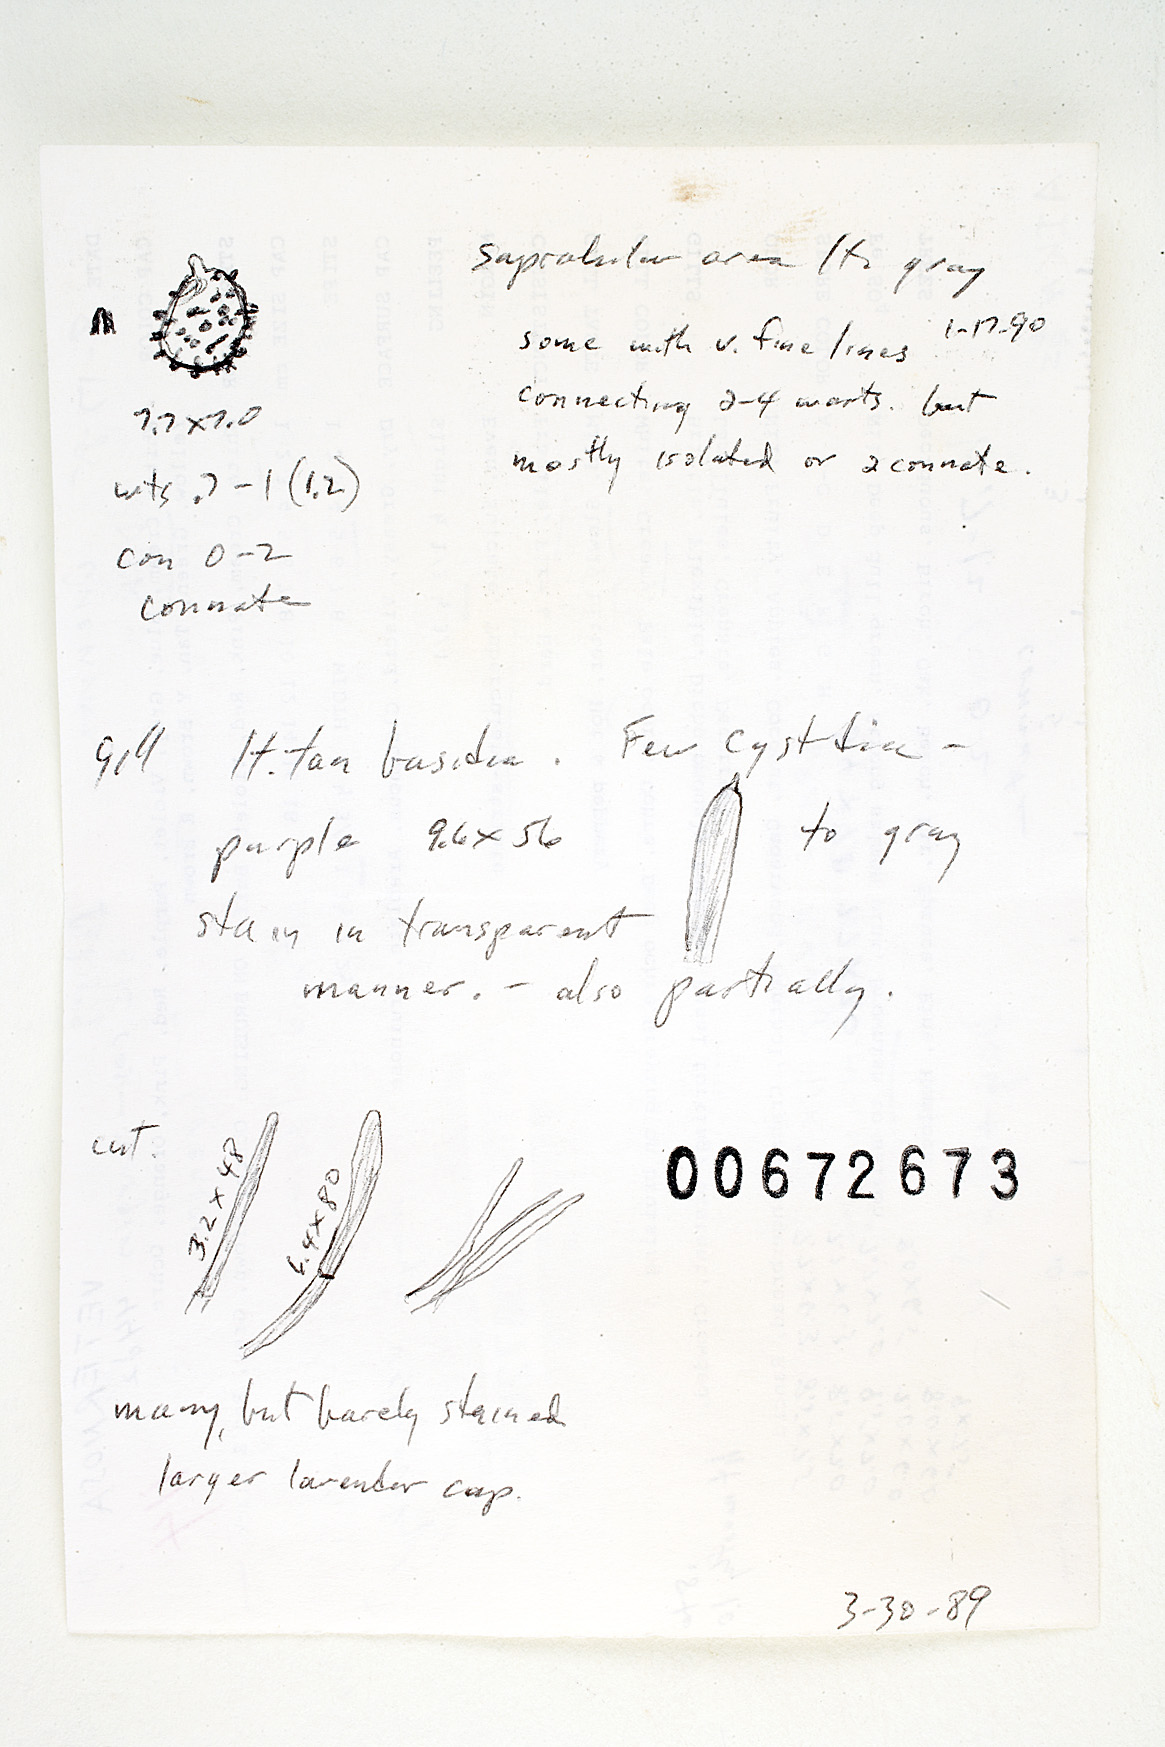 Suprahilar area lt. gray
some with v. fine lines 1-17-90
connecting 2-4 warts. but
mostly isolated or 2 connate.
7.7 x 7.0
wts .7-1 (1.2)
con 0-2
connate
Gill lt. tan basidia. Few cystidia -
purple 9.6 x 56 to gray
stain in transparent
manner. - also partially.
cut.
3.2 x 48
6.4 x 80
00672673
many, but barely stained
larger lavender cap.
3-30-89